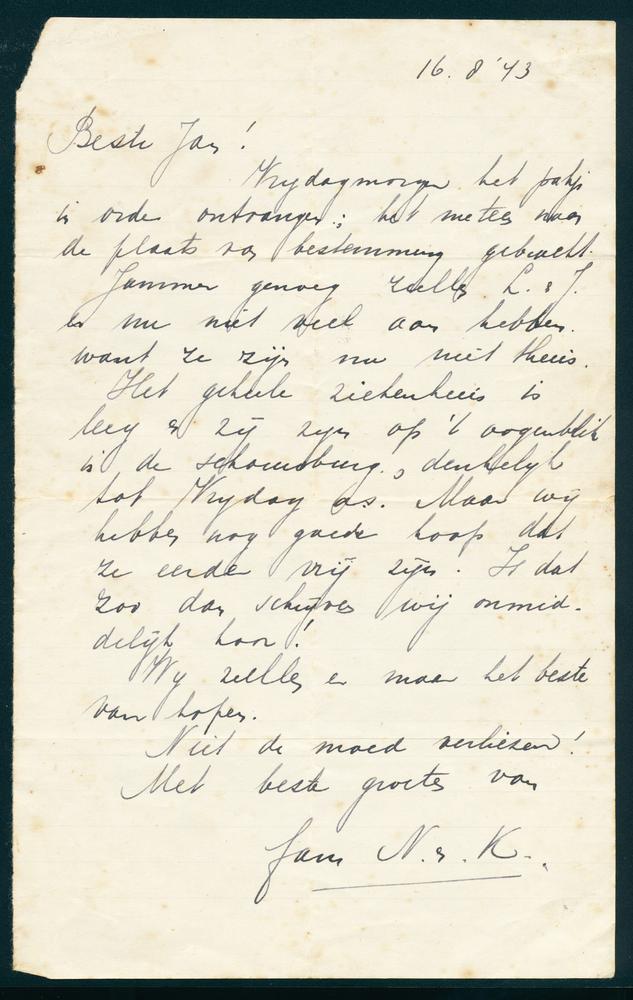 16. 8 '43
Beste Jan!
Vrijdagmorgen het pakje
in orde ontvangen; het meteen naar
de plaats van bestemming gebracht.
Jammer genoeg zullen L. & J.
er nu niet veel aan hebben.
want ze zijn nu niet thuis.
Het geheele ziekenhuis is
leeg en zij zijn op 't oogenblik
in de schouwburg, denkelijk
tot Vrijdag a.s. Maar wij
hebben nog goede hoop dat
ze eerder vrij zijn. Is dat
zoo dan schrijven wij onmid-
delijk hoor!
Wij zullen er maar het beste
van hopen.
Niet de moed verliezen!
Met beste groeten van
fam N. & K.